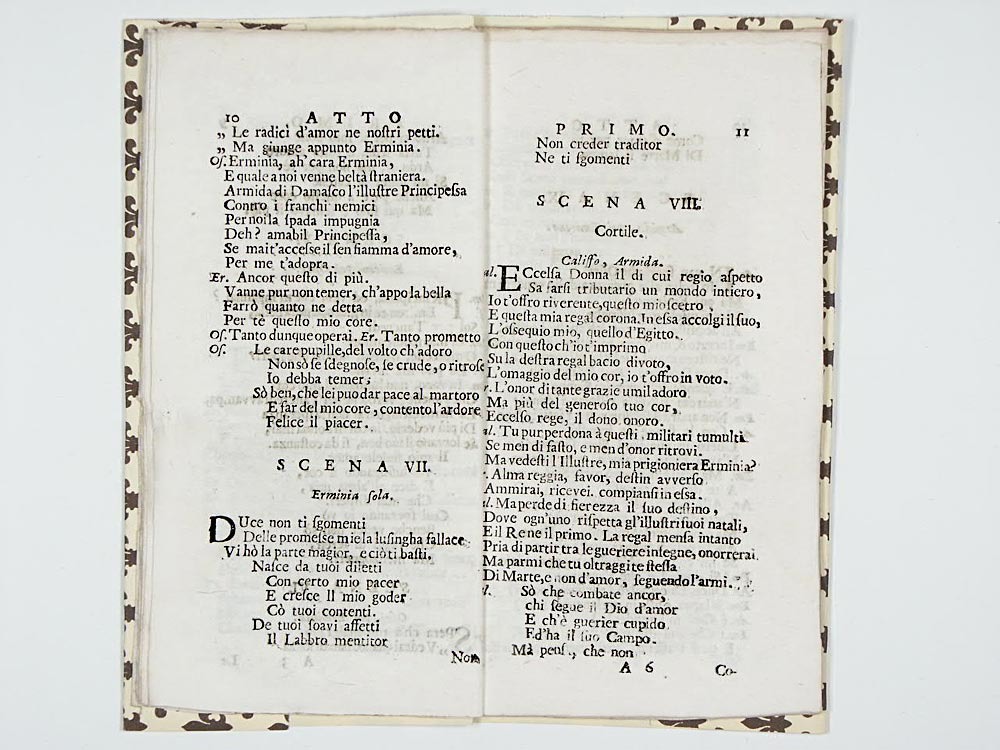 10 ATTO
„ Le radici d'amor ne nostri petti.
„ Ma giunge appunto Erminia.
Os. Erminia, ah' cara Erminia,
E quale a noi venne beltà straniera.
Armida di Damasco l'illustre Principessa
Contro i franchi nemici
Per noi la spada impugnia
Deh? amabil Principessa,
Se mai t'accesse il sen fiamma d'amore,
Per me t'adopra.
Er. Ancor questo di più.
Vanne pur non temer, ch'appo la bella
Farrò quanto ne detta
Per tè questo mio core.
Os. Tanto dunque operai. Er. Tanto prometto
Os. Le care pupille, del volto ch'adoro
Non sò se sdegnose, se crude, o ritrose
Io debba temer;
Sò ben, che lei puo dar pace al martoro
E far del mio core, contento l'ardore
Felice il piacer.
SCENA VII.
Erminia sola.
DUce non ti sgomenti
Delle promesse mie la lusingha fallace
Vi hò la parte magior, e ciò ti basti.
Nasce da tuoi diletti
Con certo mio pacer
E cresce Il mio goder
Cò tuoi contenti.
De tuoi soavi affetti
Il Labbro mentitor
Non
PRIMO. 11
Non creder traditor
Ne ti sgomenti
SCENA VIII.
Cortile.
Califfo, Armida.
al. ECcelsa Donna il di cui regio aspetto
Sa farsi tributario un mondo intiero,
Io t'offro riverente, questo mio scetro,
E questa mia regal corona. In essa accolgi il suo,
L'ossequio mio, quello d'Egitto.
Con questo ch'io t'imprimo
Su la destra regal bacio divoto,
L'omaggio del mio cor, io t'offro in voto.
r. L'onor di tante grazie umil adoro
Ma più del generoso tuo cor,
Eccelso rege, il dono onoro.
al. Tu pur perdona à questi militari tumulti
Se men di fasto, e men d'onor ritrovi.
Ma vedesti l'Illustre, mia prigioniera Erminia?
. Alma reggia, favor, destin avverso
Ammirai, ricevei. compiansi in essa.
l. Ma perde di fierezza il suo destino,
Dove ogn'uno rispetta gl'illustri suoi natali,
E il Re ne il primo. La regal mensa intanto
Pria di partir tra le gueriere insegne, onorrerai
Ma parmi che tu oltraggi te stessa
Di Marte, e non d'amor, seguendo l'armi.
l. Sò che combate ancor,
chi segue il Dio d'amor
E ch'è guerier cupido
Ed'ha il suo Campo.
Mà pens., che non
A 6 Co-